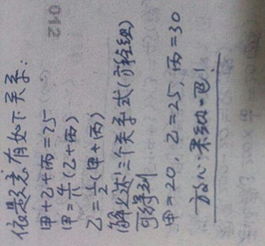 依题意有如下关系:
甲+乙+丙=75
甲=4/11(乙+丙)
乙=1/2(甲+丙)
解上述三个关系式(方程组)
可得到
甲=20, 乙=25, 丙=30
放心·采纳·吧